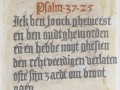 Psalm·37·25
Ick ben jonck gheweest
en ben oudt gheworden
en hebbe noyt ghesien
den rehveerdigen verlaten
ofte sijn zaedt om broot
gaen